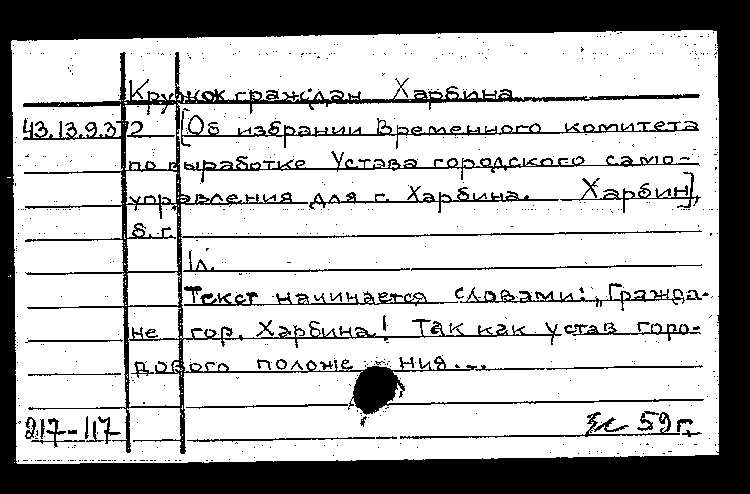 Кружок граждан Харбина
43.13.9.372 [Об избрании Временного комитета
по выработке Устава городского само-
управления для г. Харбина. Харбин],
б. г.
1л.
Текст начинается словами: „Гражда-
не гор. Харбина! Так как устав горо-
дового положения...
217-117 59 г.